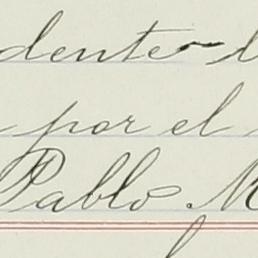 dente
por el
Pablo M